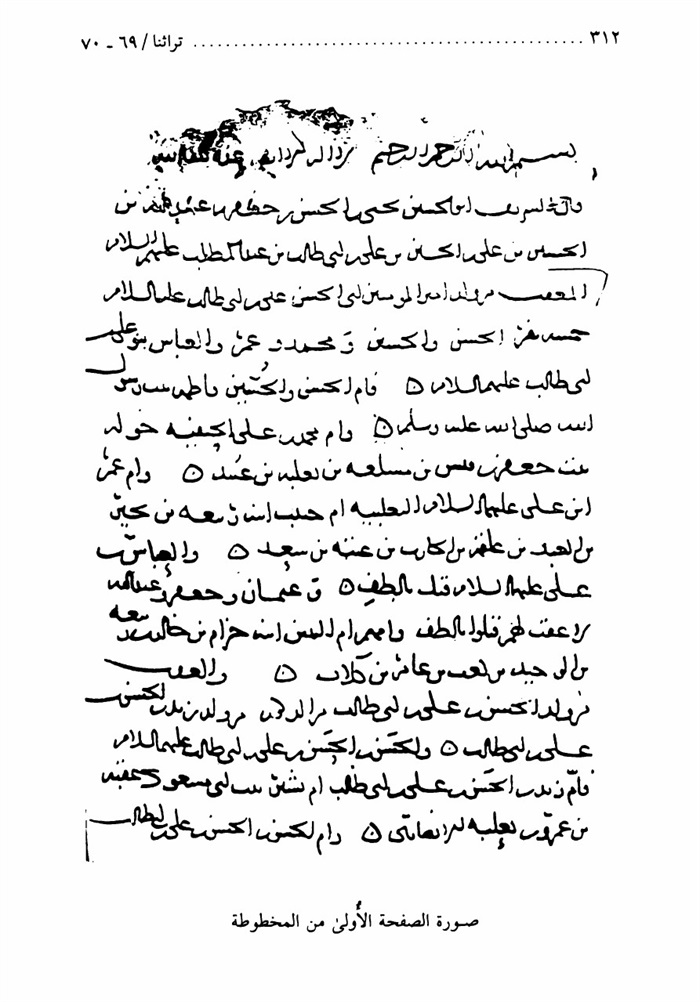 ٣١٢ ........................................................ تراثنا / ٦٩ ـ ٧٠
بسم الله الرحمن الرحيم
قال الشريف ابو الحسين يحيى بن الحسن بن جعفر بن عبيد الله بن
الحسين بن علي بن الحسين بن علي بن ابي طالب بن عبد المطلب عليهم السلام
المعقب من ولد امير المومنين ابي الحسن علي بن ابي طالب عليه السلام
خمسه نفر الحسن والحسين و محمد و عمر والعباس بنو علي
ابن ابي طالب عليهم السلام ٥ فام الحسن والحسين فاطمه بنت رسول
الله صلى الله عليه وسلم ٥ وام محمد بن علي الحنفيه خوله
بنت جعفر بن قيس بن مسلمه بن ثعلبه بن عبيد ٥ وام عمر
ابن علي عليهما السلام التعلبيه ام حبيب ابنة ربيعه بن بجير
بن العبد بن علقمه بن الحارث بن عتبه بن سعد ٥ والعباس بن
علي عليهما السلام قتل بالطف ٥ و عثمان و جعفر وعبد الله
لا عقب لهم قتلوا بالطف وامهم ام البنين ابنة حزام بن خالد بن ربيعه
بن الوحيد بن كعب بن عامر بن كلاب ٥ والعقب
من ولد الحسن بن علي بن ابي طالب من ولد زيد بن الحسن بن
علي بن ابي طالب ٥ والحسن بن الحسن بن علي بن ابي طالب عليهم السلام
فام زيد بن الحسن بن علي بن ابي طالب ام بشير بنت ابي مسعود عقبه
بن عمرو بن ثعلبه الانصاري ٥ وام الحسن بن الحسن بن علي بن ابي طالب
صورة الصفحة الأُولىٰ من المخطوطة